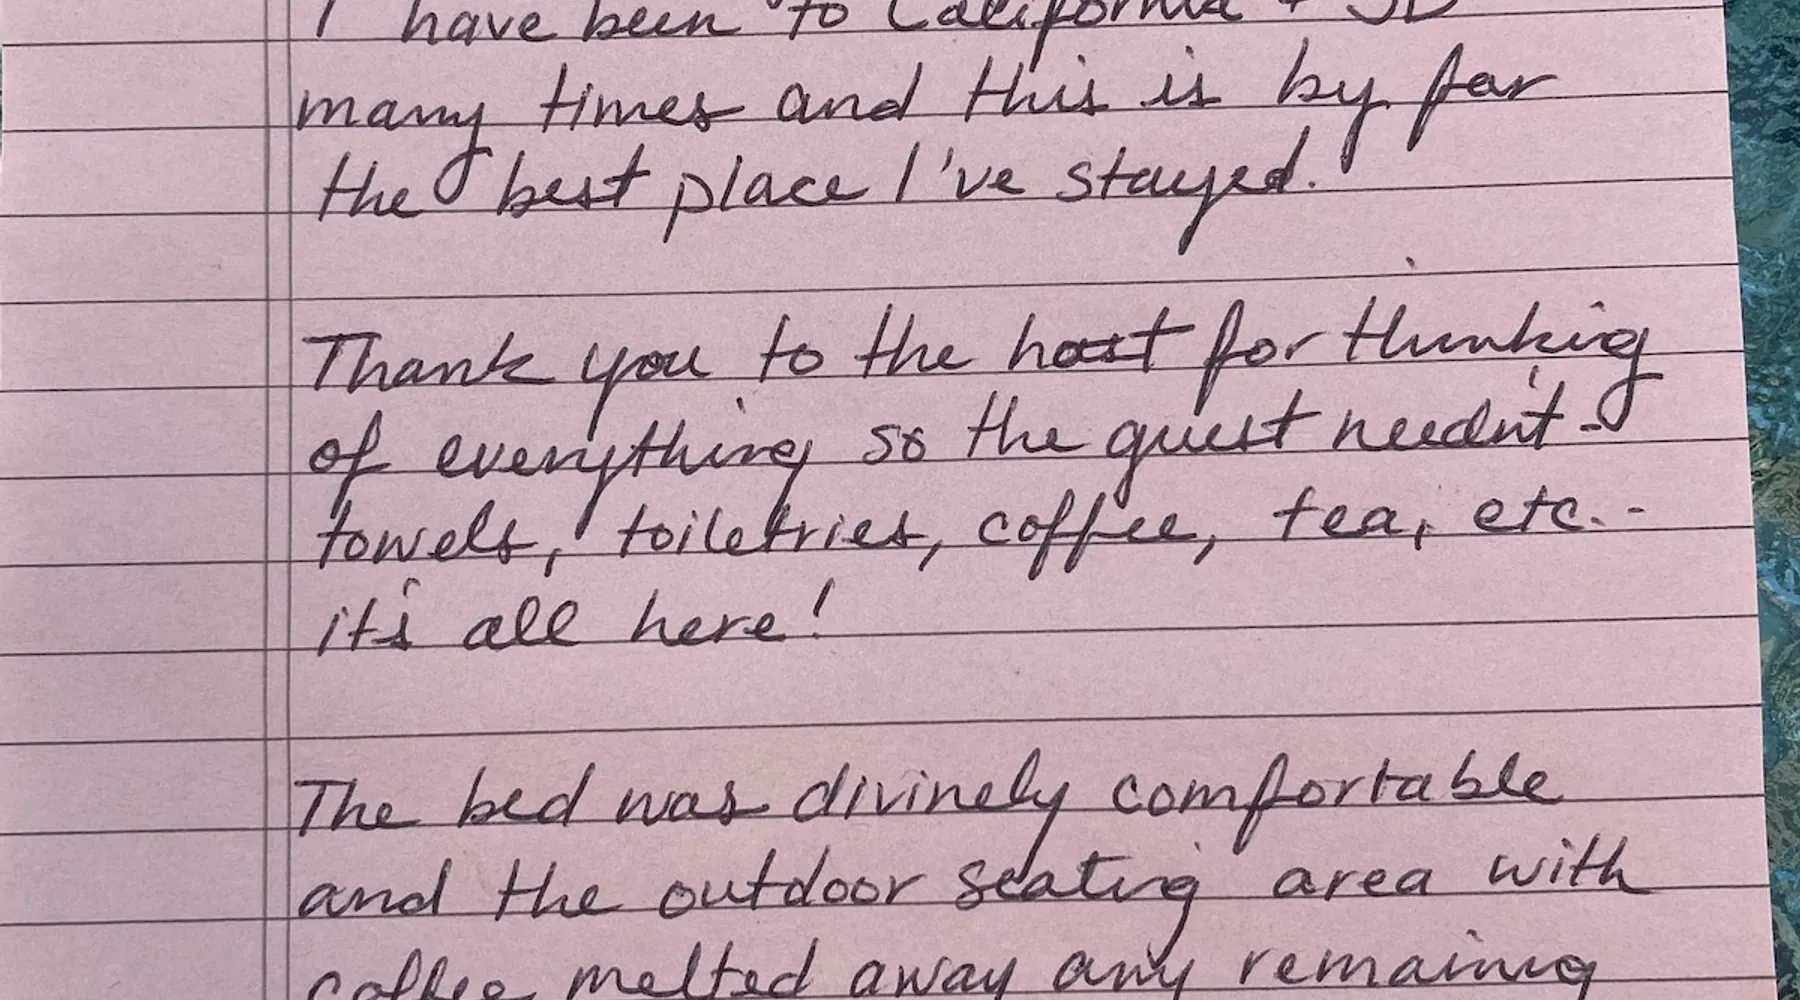 I have been to California + SD
many times and this is by far
the best place I've stayed.
Thank you to the host for thinking
of everything so the guest needn't -
towels, toiletries, coffee, tea, etc. -
it's all here!
The bed was divinely comfortable
and the outdoor seating area with
coffee melted away any remaining